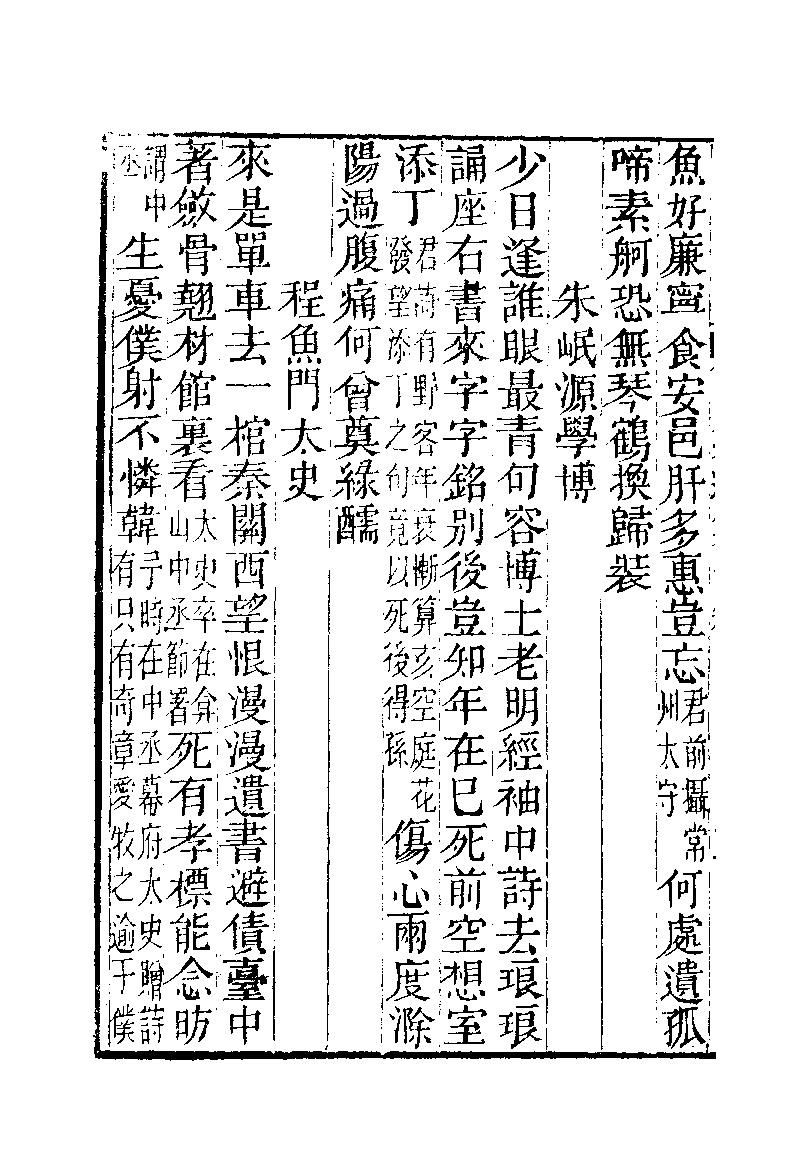 魚好廉寧食安邑肝多惠豈忘君前攝常州太守何處遺孤
啼素舸恐無琴鶴換歸裝
朱岷源學博
少日逢誰眼最青句容博士老明經袖中詩去琅琅
誦座右書來字字銘別後豈知年在巳死前空想室
添丁君詩有野客年衰慚算亥空庭花發望添丁之句竟以死後得孫傷心兩度滁
陽過腹痛何曾奠綠醽
程魚門太史
來是單車去一棺秦關西望恨漫漫遺書避債臺中
著斂骨翹材館裏看太史卒在弇山中丞節署死有孝標能念昉
謂中丞生憂僕射不憐韓予時在中丞幕府太史贈詩有只有奇章愛牧之逾于僕